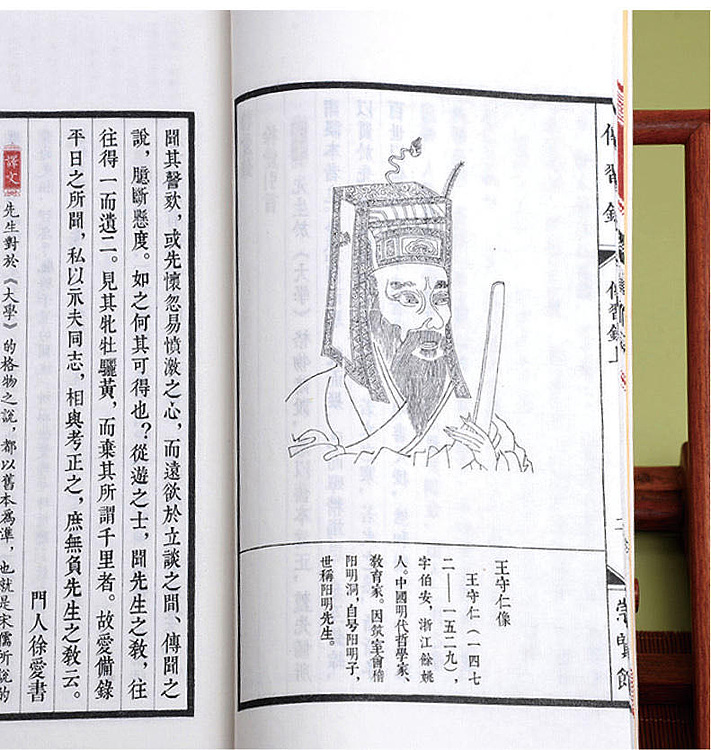 傳習錄
傳習錄上
二
崇賢館
王守仁像
王守仁（一四七
二——一五一九），
字伯安，浙江餘姚
人。中國明代哲學家、
教育家。因築室會稽
陽明洞，自號陽明子，
世稱陽明先生。
聞其謦欬，或先懷忽易憤激之心，而遽欲於立談之間、傳聞之
說，臆斷懸度。如之何其可得也？從遊之士，聞先生之教，往
往得一而遺二。見其牝牡驪黃，而棄其所謂千里者。故愛備錄
平日之所聞，私以示夫同志，相與考正之，庶無負先生之教云。
門人徐愛書
譯文
先生對於《大學》的格物之說，都以舊本爲準，也就是宋儒所說的